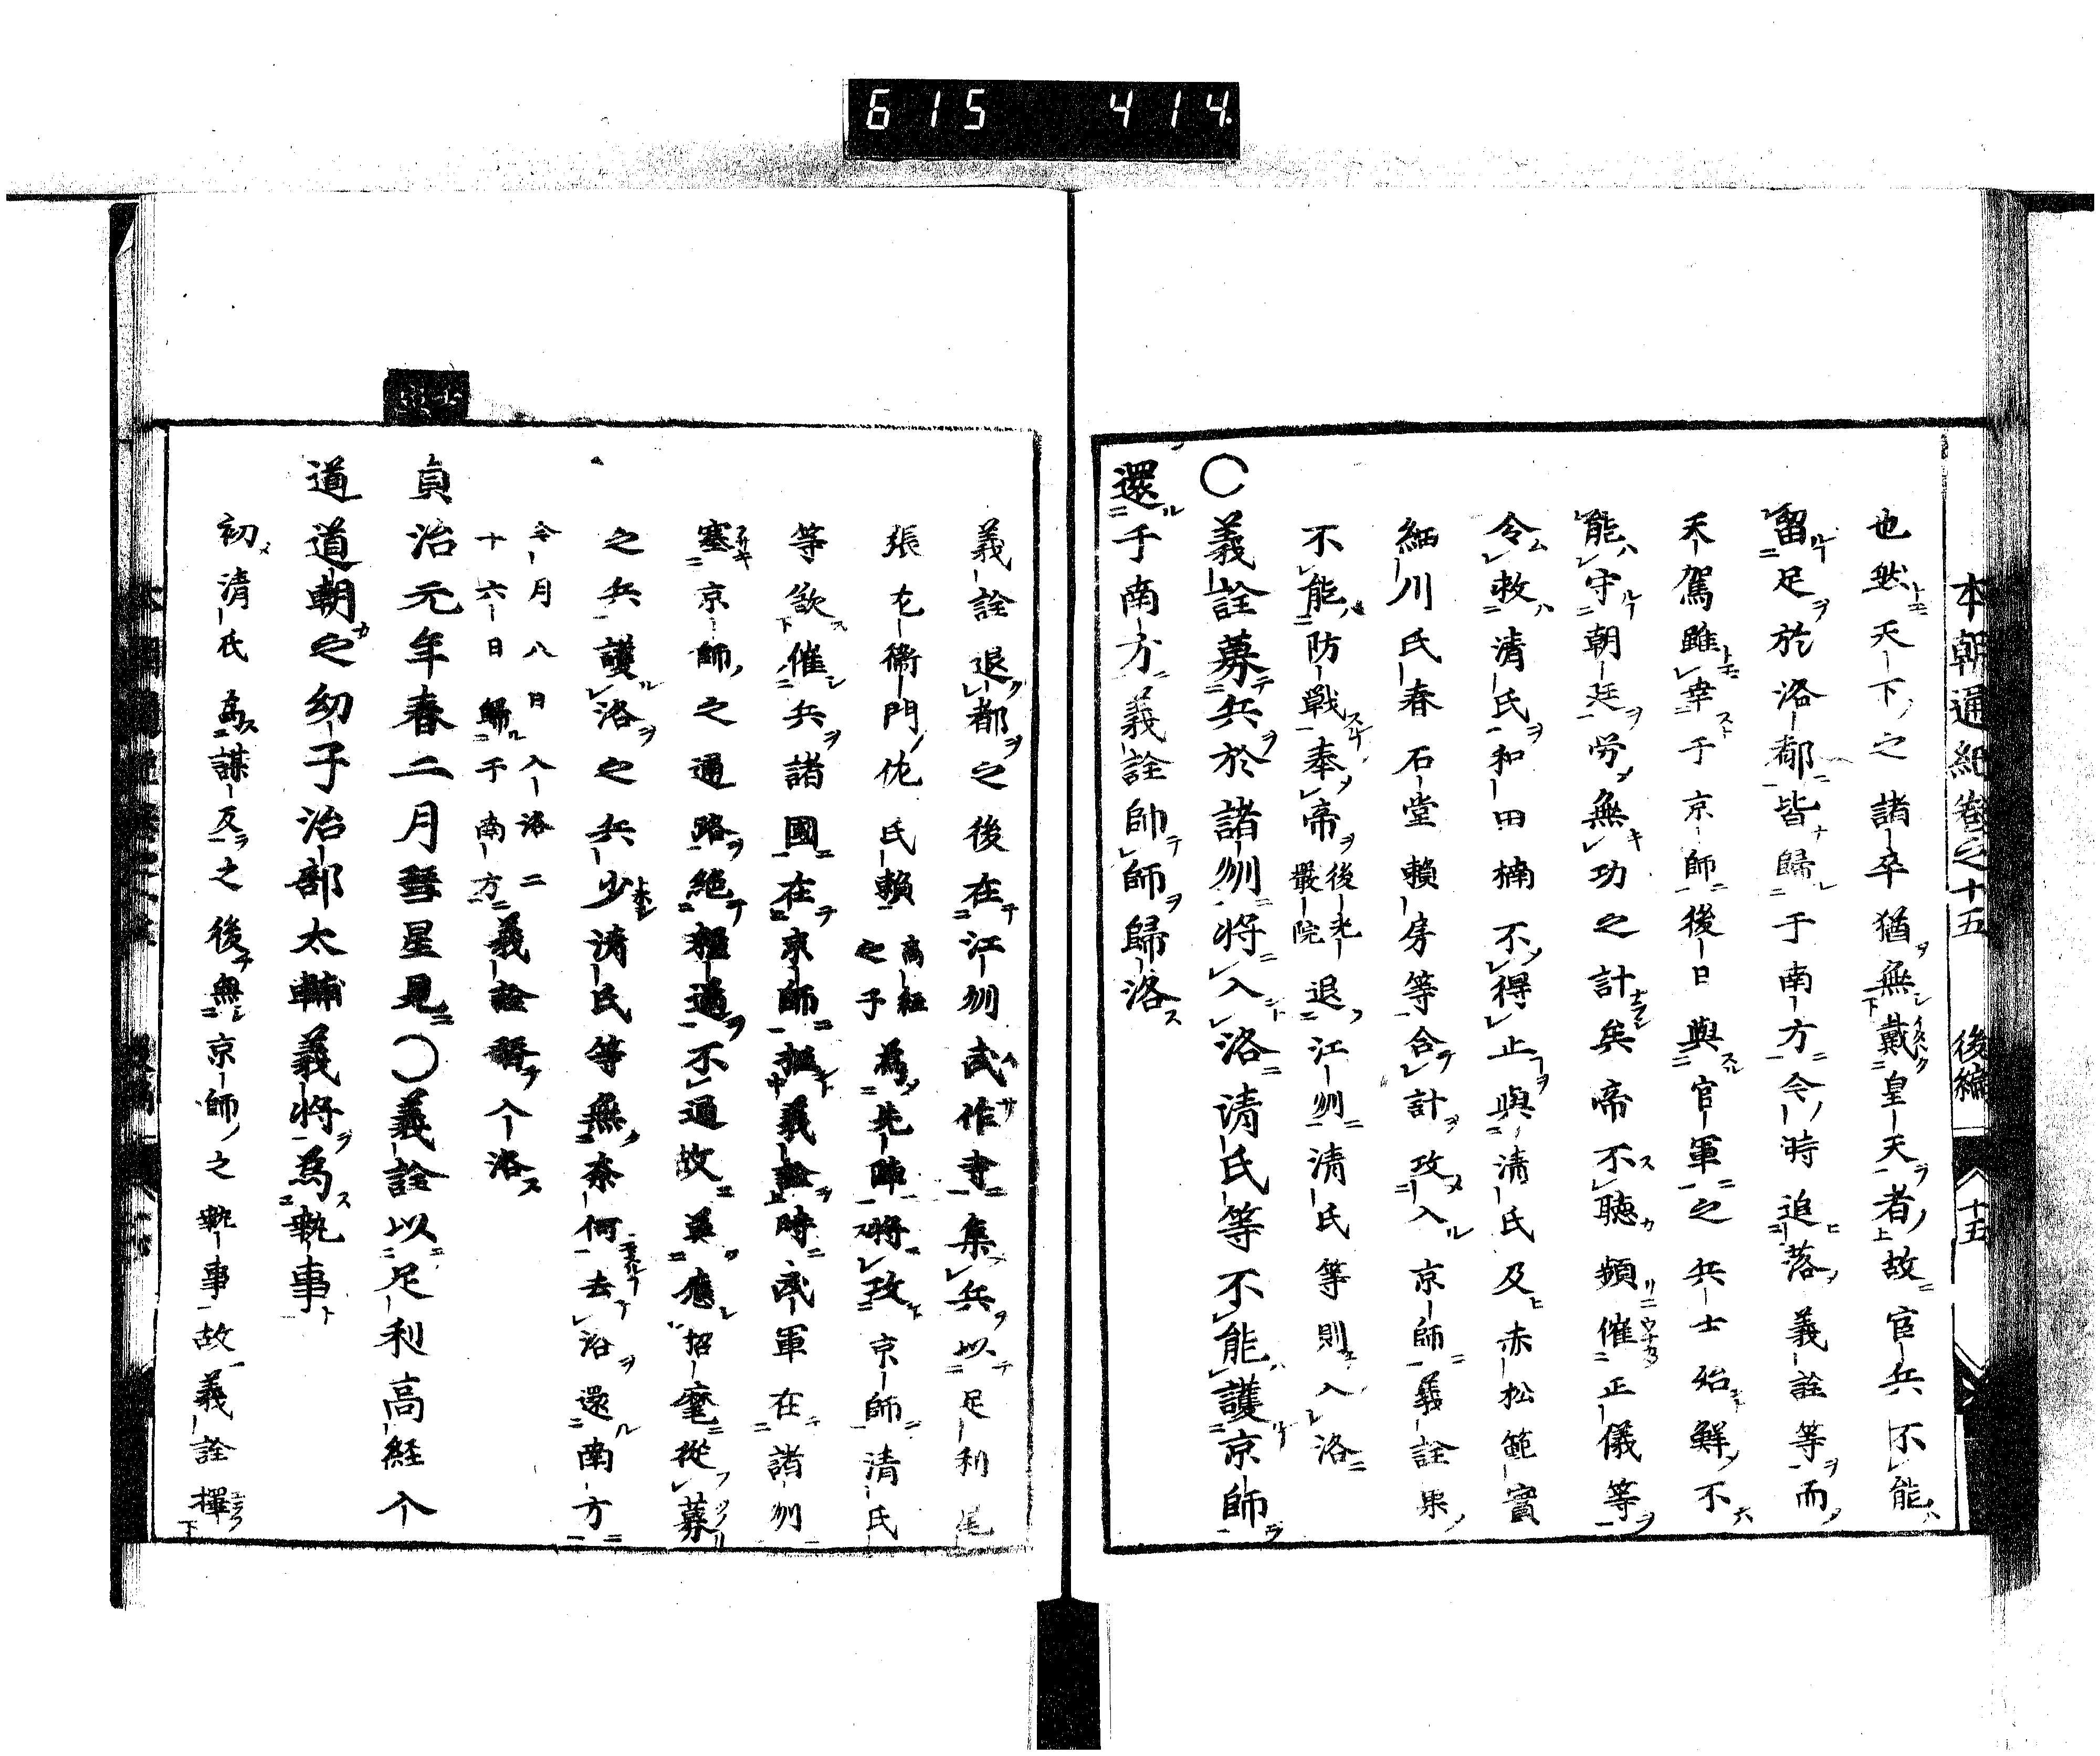 615 414
本朝通紀卷之十五 後編 十五
也然天下之諸卒猶無戴皇天者故官兵不能
留足於洛都皆歸于南方今時追落義詮等而
禾駕雖幸于京師後日與官軍之兵士殆鮮不
能守朝廷勞無功之計矣帝不聽頻催正儀等
令救清氏和田楠不得止與清氏及赤松範實
細川氏春石堂賴房等合計攻入京師義詮果
不能防戰奉帝後光嚴院退江州清氏等則入洛
○義詮募兵於諸州將入洛清氏等不能護京師
還于南方義詮帥師歸洛
義詮退都之後在江州武作寺集兵以足利尾
張左衞門佐氏賴高經之子為先陣將攻京師清氏
等欲催兵諸國在京師挹義詮時武軍在諸州
塞京師之通路絕糧道不通故莫應招麾從募
之兵護洛之兵少清氏等無奈何去洛還南方
今月八日入洛二十六日歸于南方義詮入洛
貞治元年春二月彗星見○義詮以足利高經入
道道朝之幼子治部太輔義將為執事
初清氏為謀反之後無京師之執事故義詮擇